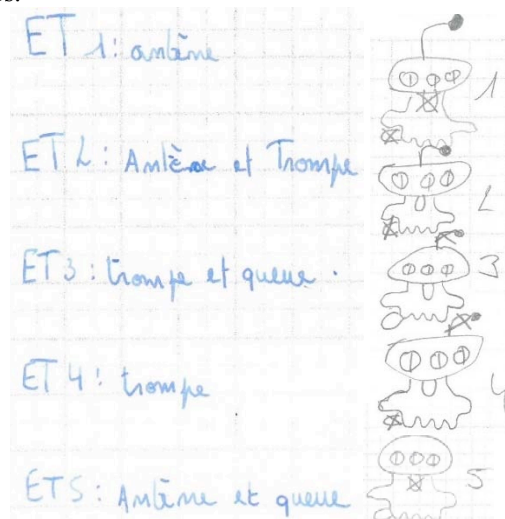 ET 1 : antène 1
ET 2 : Antène et Trompe 2
ET 3 : trompe et queue . 3
ET 4 : trompe 4
ET 5 : Antène et queue 5